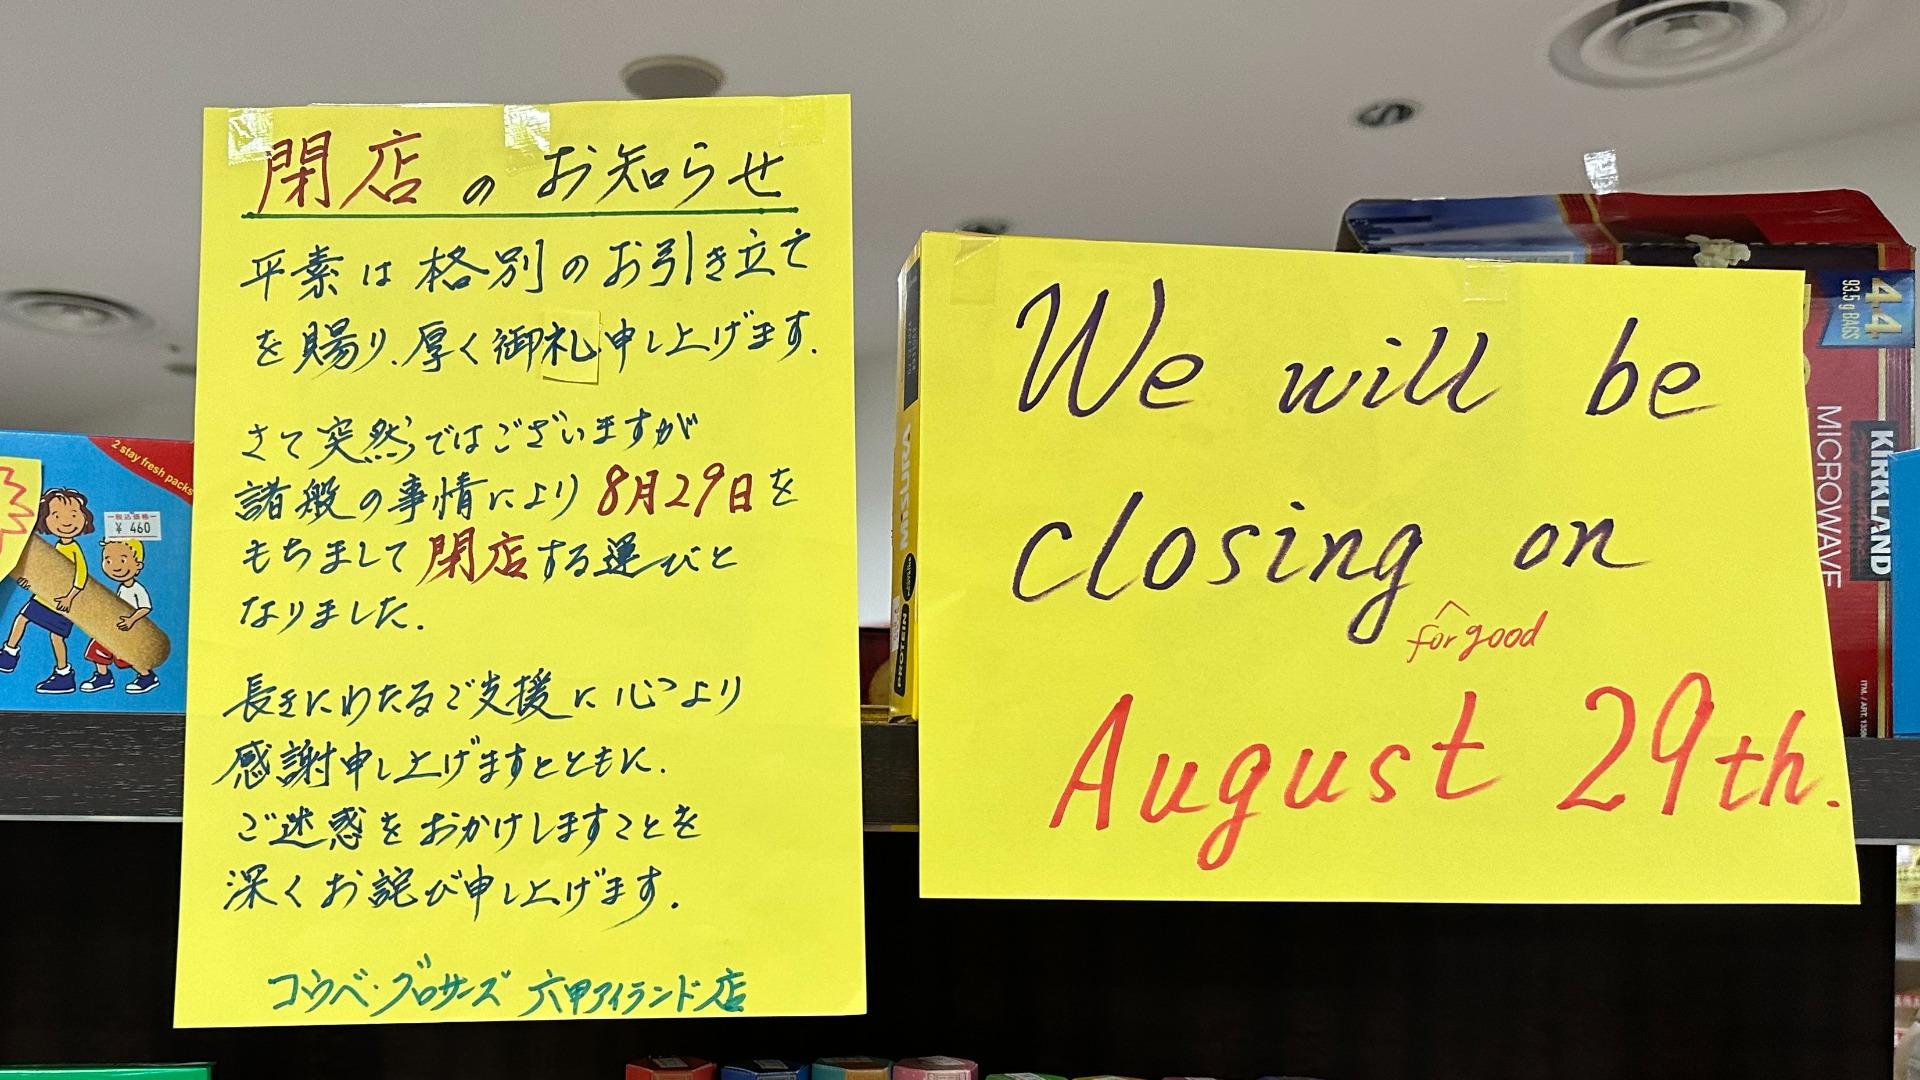 閉店のお知らせ
平素は格別のお引き立て
を賜り、厚く御礼申し上げます.
さて突然ではございますが
諸般の事情により8月29日を
もちまして閉店する運びと
なりました.
長きにわたるご支援に心より
感謝申し上げますとともに.
ご迷惑をおかけしますことを
深くお詫び申し上げます.
コウベ・グロサーズ 六甲アイランド店
We will be
closing on
for good
August 29th.
2 stay fresh packs
税込価格
¥ 460
MISURA
PROTEIN
44
93.5 g BAGS
KIRKLAND
MICROWAVE